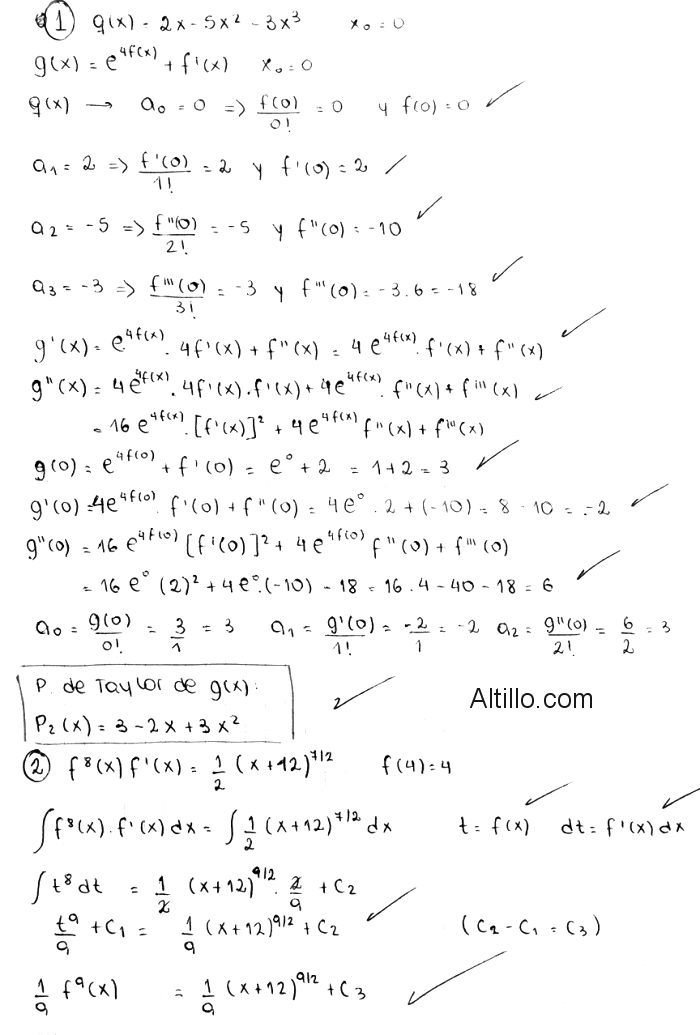 ① q(x) = 2x - 5x² - 3x³ x₀ = 0
g(x) = e^{4f(x)} + f'(x) x₀ = 0
q(x) → a₀ = 0 => f(0)/0! = 0 y f(0) = 0 ✓
a₁ = 2 => f'(0)/1! = 2 y f'(0) = 2 ✓
a₂ = -5 => f''(0)/2! = -5 y f''(0) = -10 ✓
a₃ = -3 => f'''(0)/3! = -3 y f'''(0) = -3.6 = -18 ✓
g'(x) = e^{4f(x)} . 4f'(x) + f''(x) = 4 e^{4f(x)} . f'(x) + f''(x) ✓
g''(x) = 4e^{4f(x)} . 4f'(x) . f'(x) + 4e^{4f(x)} . f''(x) + f'''(x) ✓
= 16 e^{4f(x)} . [f'(x)]² + 4 e^{4f(x)} f''(x) + f'''(x)
g(0) = e^{4f(0)} + f'(0) = e⁰ + 2 = 1 + 2 = 3 ✓
g'(0) = 4e^{4f(0)} . f'(0) + f''(0) = 4e⁰ . 2 + (-10) = 8 - 10 = -2 ✓
g''(0) = 16 e^{4f(0)} [f'(0)]² + 4 e^{4f(0)} f''(0) + f'''(0)
= 16 e⁰ (2)² + 4 e⁰ . (-10) - 18 = 16 . 4 - 40 - 18 = 6 ✓
a₀ = g(0)/0! = 3/1 = 3 a₁ = g'(0)/1! = -2/1 = -2 a₂ = g''(0)/2! = 6/2 = 3
P. de Taylor de g(x):
P₂(x) = 3 - 2x + 3x² ✓
Altillo.com
② f⁸(x) f'(x) = 1/2 (x+12)^{7/2} f(4) = 4
∫ f⁸(x) . f'(x) dx = ∫ 1/2 (x+12)^{7/2} dx t = f(x) ✓ dt = f'(x) dx ✓
∫ t⁸ dt = 1/2 (x+12)^{9/2} . 2/9 + C₂
t⁹/9 + C₁ = 1/9 (x+12)^{9/2} + C₂ ✓ (C₂ - C₁ = C₃)
1/9 f⁹(x) = 1/9 (x+12)^{9/2} + C₃ ✓